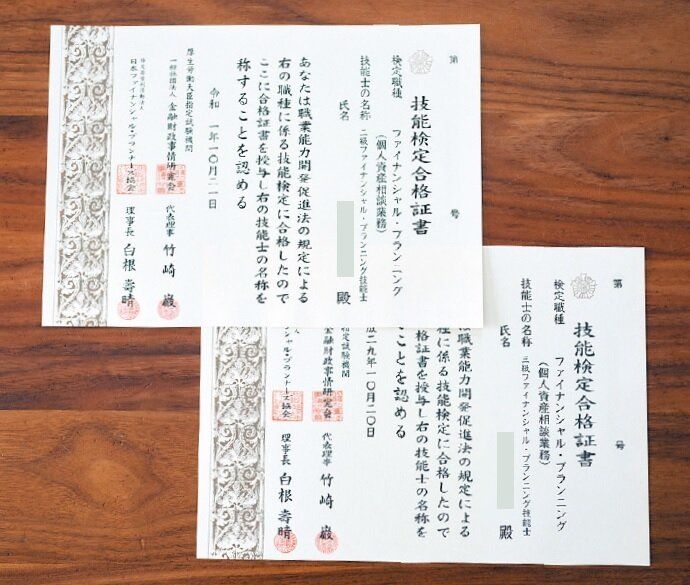 第　号
技能検定合格証書
検定職種　ファイナンシャル・プランニング
（個人資産相談業務）
技能士の名称　二級ファイナンシャル・プランニング技能士
氏名　殿
あなたは職業能力開発促進法の規定による
右の職種に係る技能検定に合格したので
ここに合格証書を授与し右の技能士の名称を
称することを認める
令和　一年一〇月二一日
厚生労働大臣指定試験機関
一般社団法人　金融財政事情研究会　代表理事　竹崎　巖
特定非営利活動法人
日本ファイナンシャル・プランナーズ協会　理事長　白根　壽晴
第　号
技能検定合格証書
検定職種　ファイナンシャル・プランニング
（個人資産相談業務）
技能士の名称　三級ファイナンシャル・プランニング技能士
氏名　殿
は職業能力開発促進法の規定による
種に係る技能検定に合格したので
合格証書を授与し右の技能士の名称を
ことを認める
成二九年一〇月二〇日
指定試験機関
金融財政事情研究会　代表理事　竹崎　巖
ンシャル・プランナーズ協会　理事長　白根　壽晴